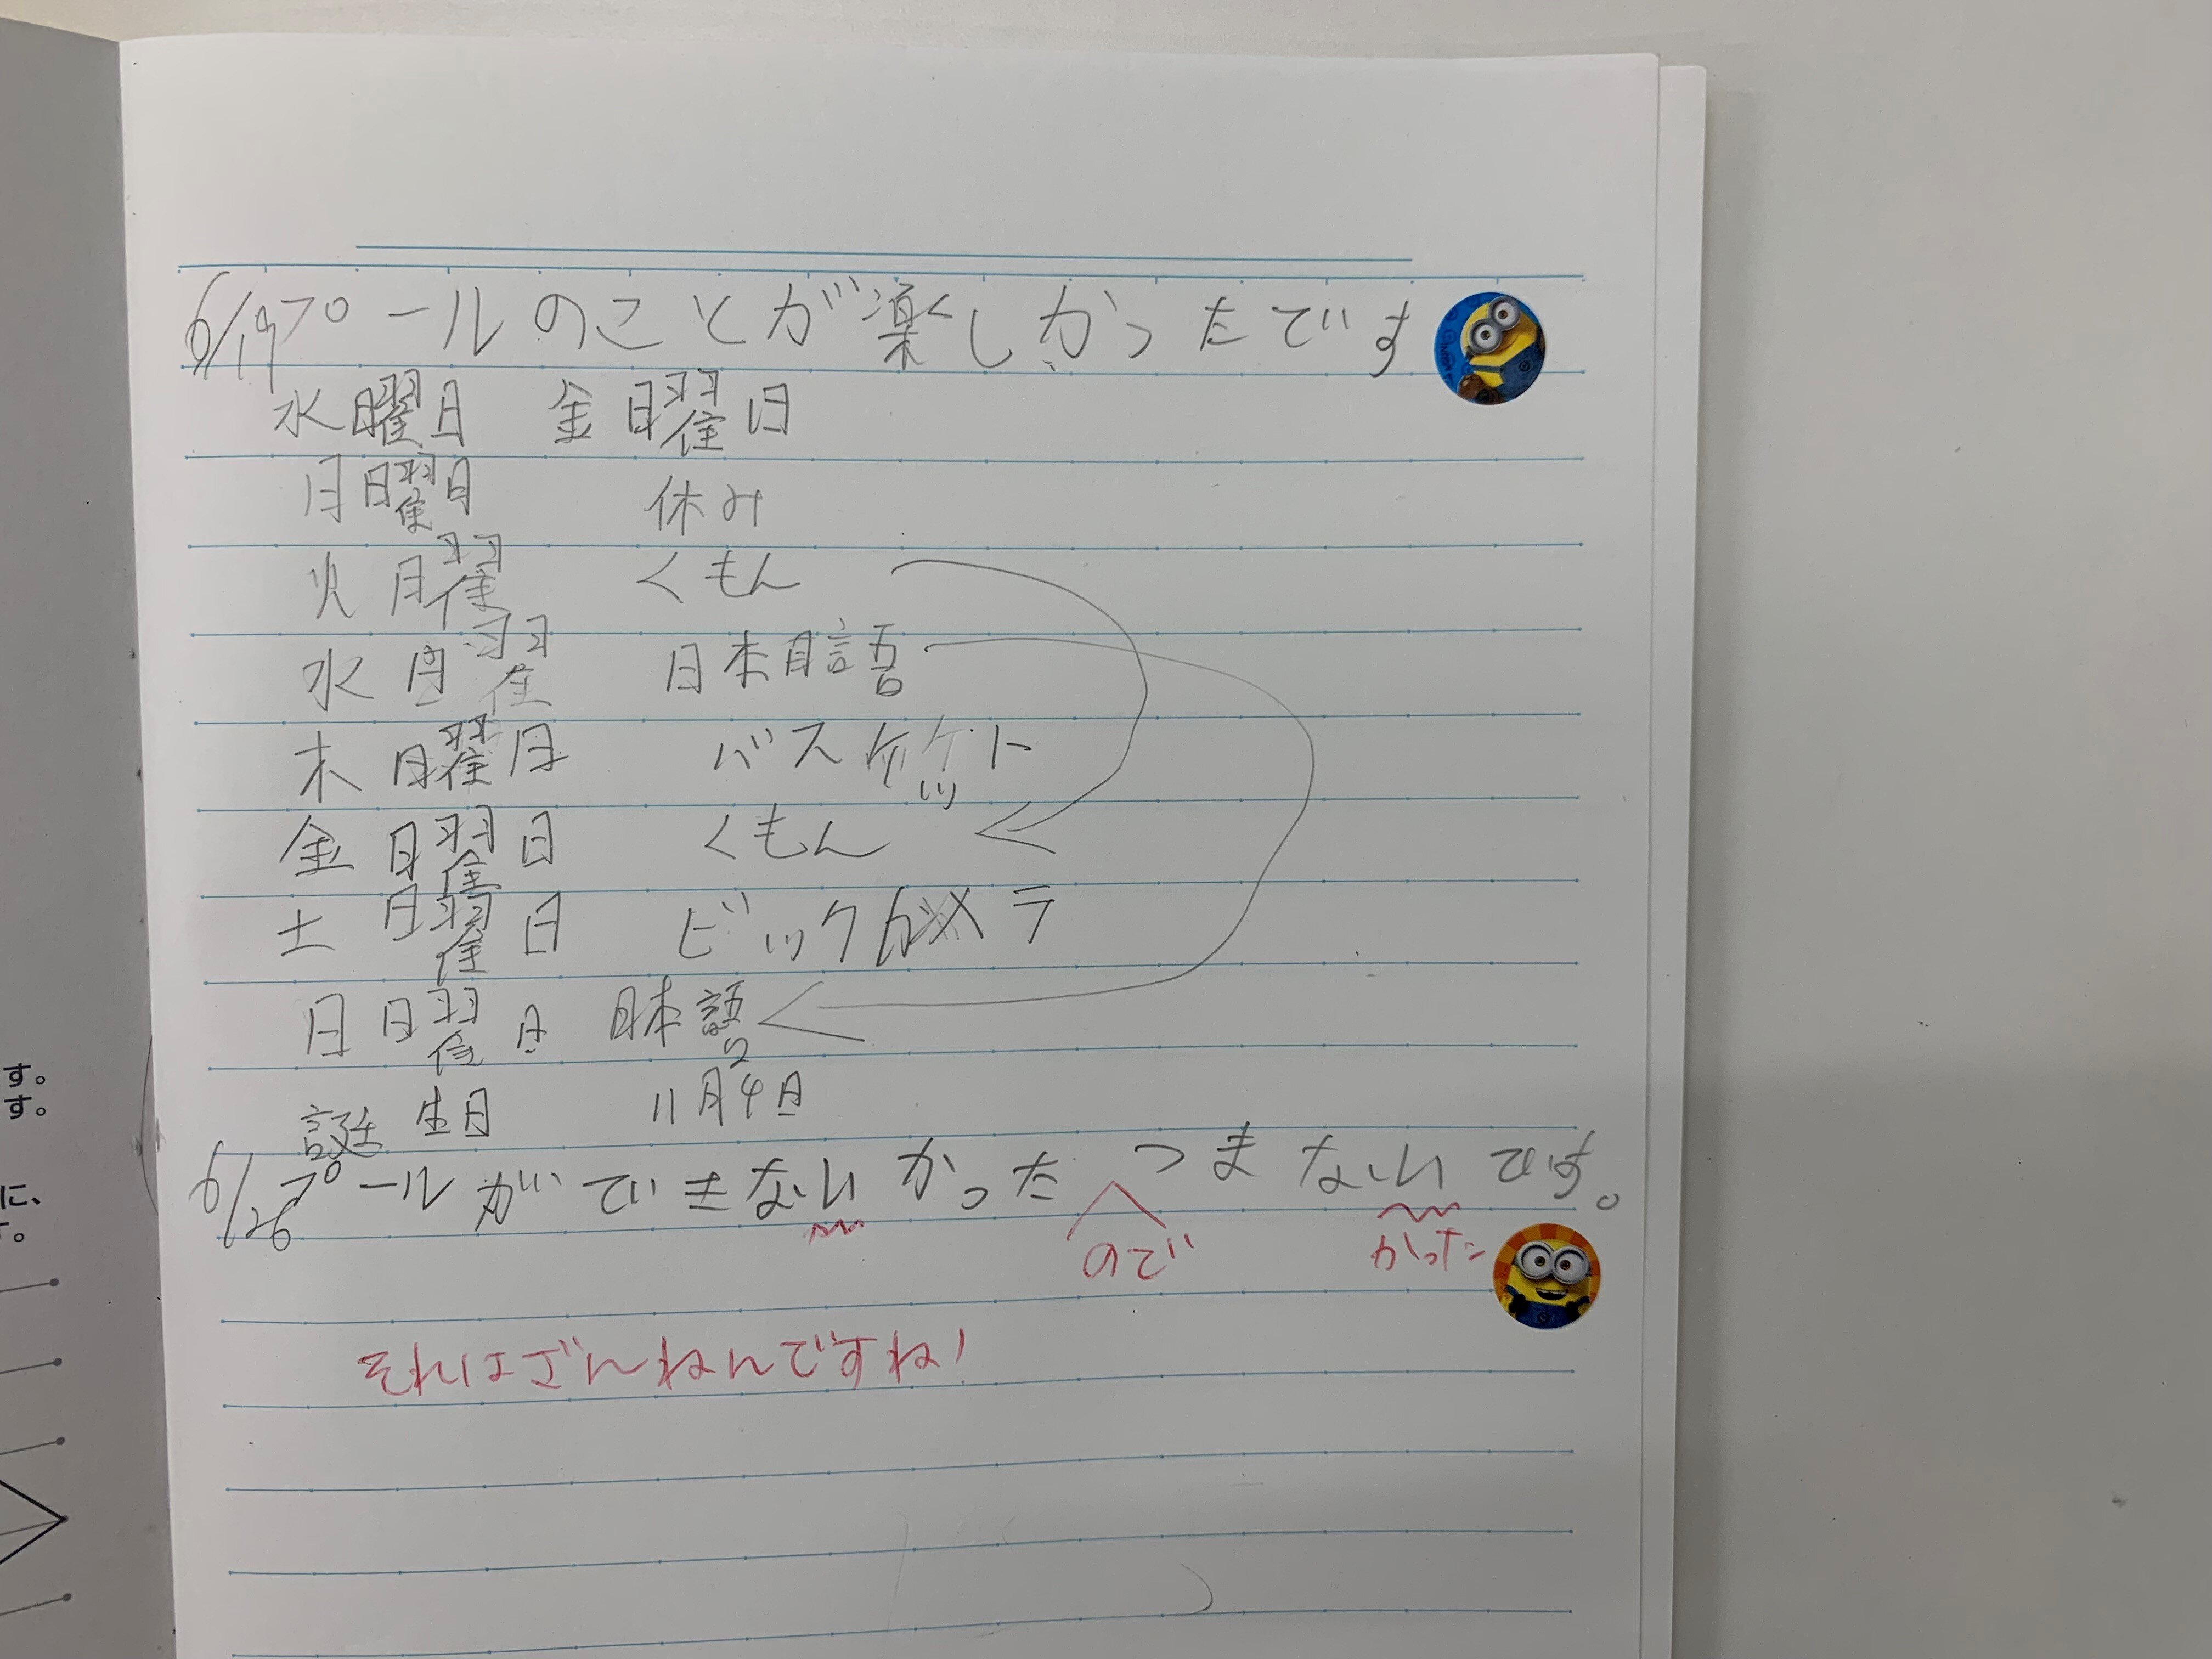 6/19プールのことが楽しかったです
水曜日 金曜日
月曜日 休み
火曜 くもん
水曜 日本語
木曜日 バスケット
金曜日 くもん
土曜日 ビックカメラ
日曜日 日本語
誕生日 11月4日
6/26プールができないかった つまないです。
ので かった
それはざんねんですね!
す。
す。
に、
す。